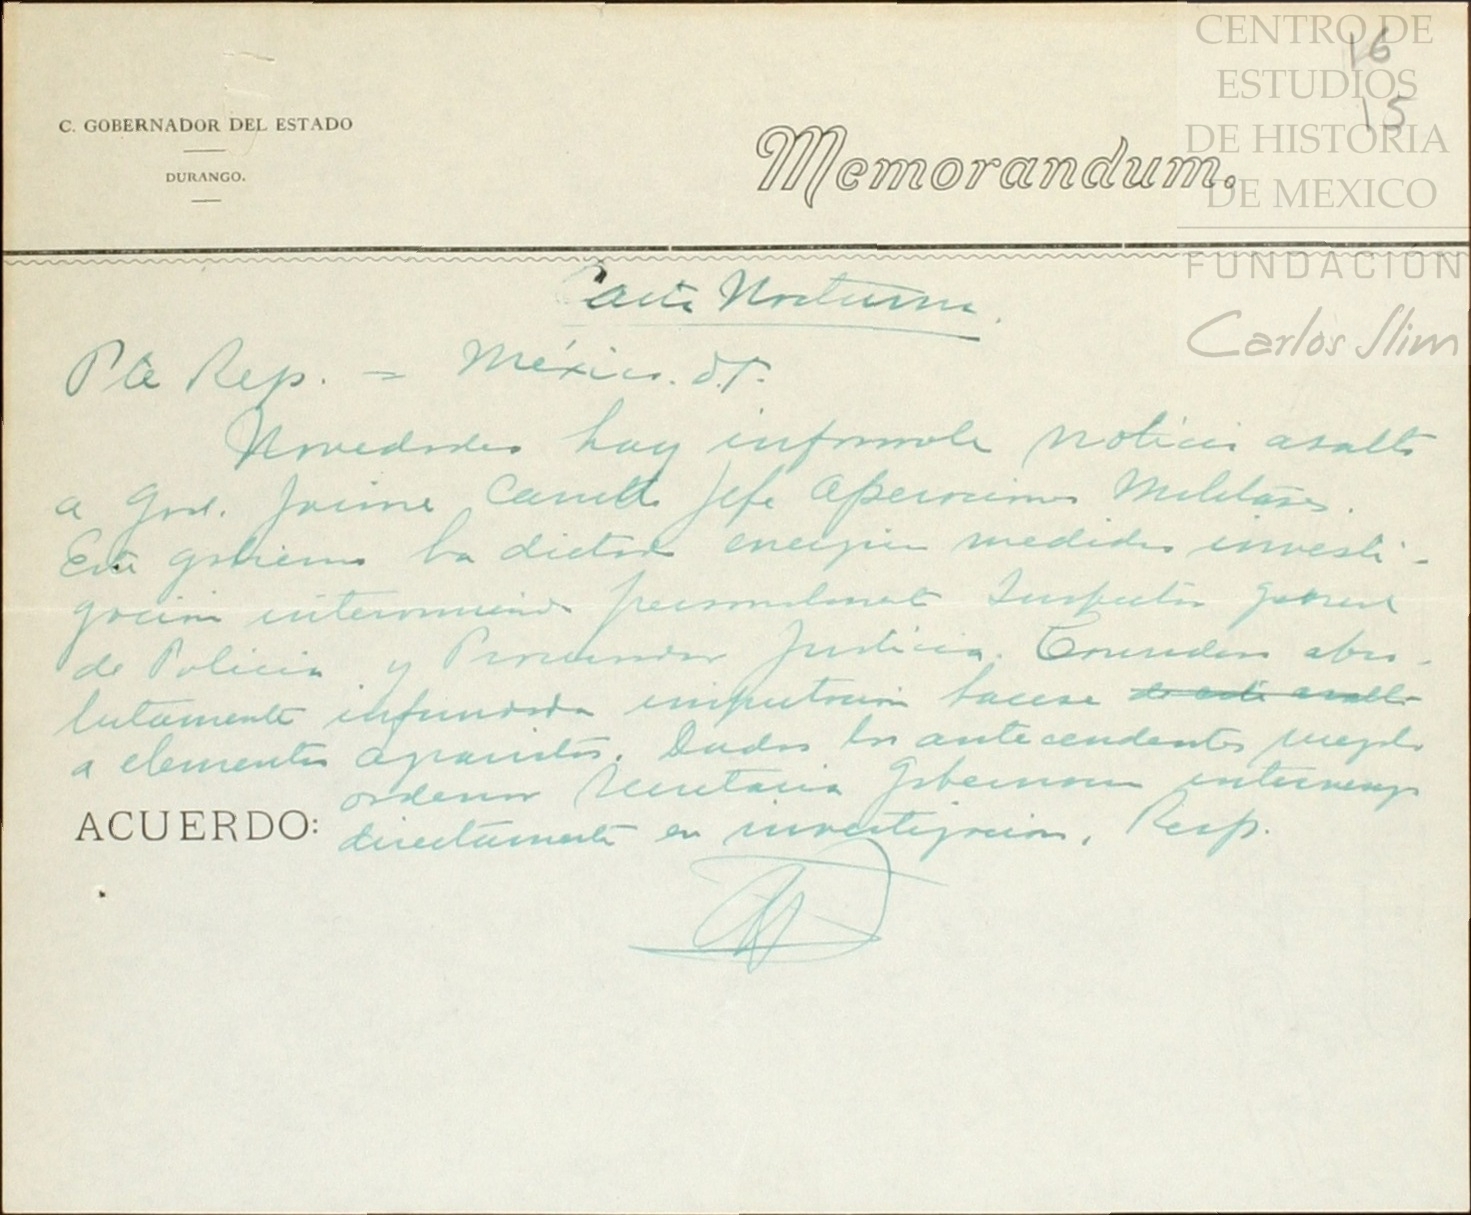 CENTRO DE
ESTUDIOS
DE HISTORIA
DE MEXICO
FUNDACION
Carlos Slim
16
15
C. GOBERNADOR DEL ESTADO
DURANGO.
Memorandum.
Carta Nocturna.
Pte Rep. = México. D.F.
Novedades hoy informale noticia asalto
a Gral. Jaime Carrillo Jefe Operaciones Militares.
Este gobierno ha dictado energicas medidas investi-
gacion interviniendo personalmente Inspector General
de Policia y Procurador Justicia. Considero abso-
lutamente infundada imputacion hacese de este asalto
a elementos agraristas. Dados los antecedentes ruegole
ordenar Secretaria Gobernacion intervenga
ACUERDO: directamente en investigacion. Resp.